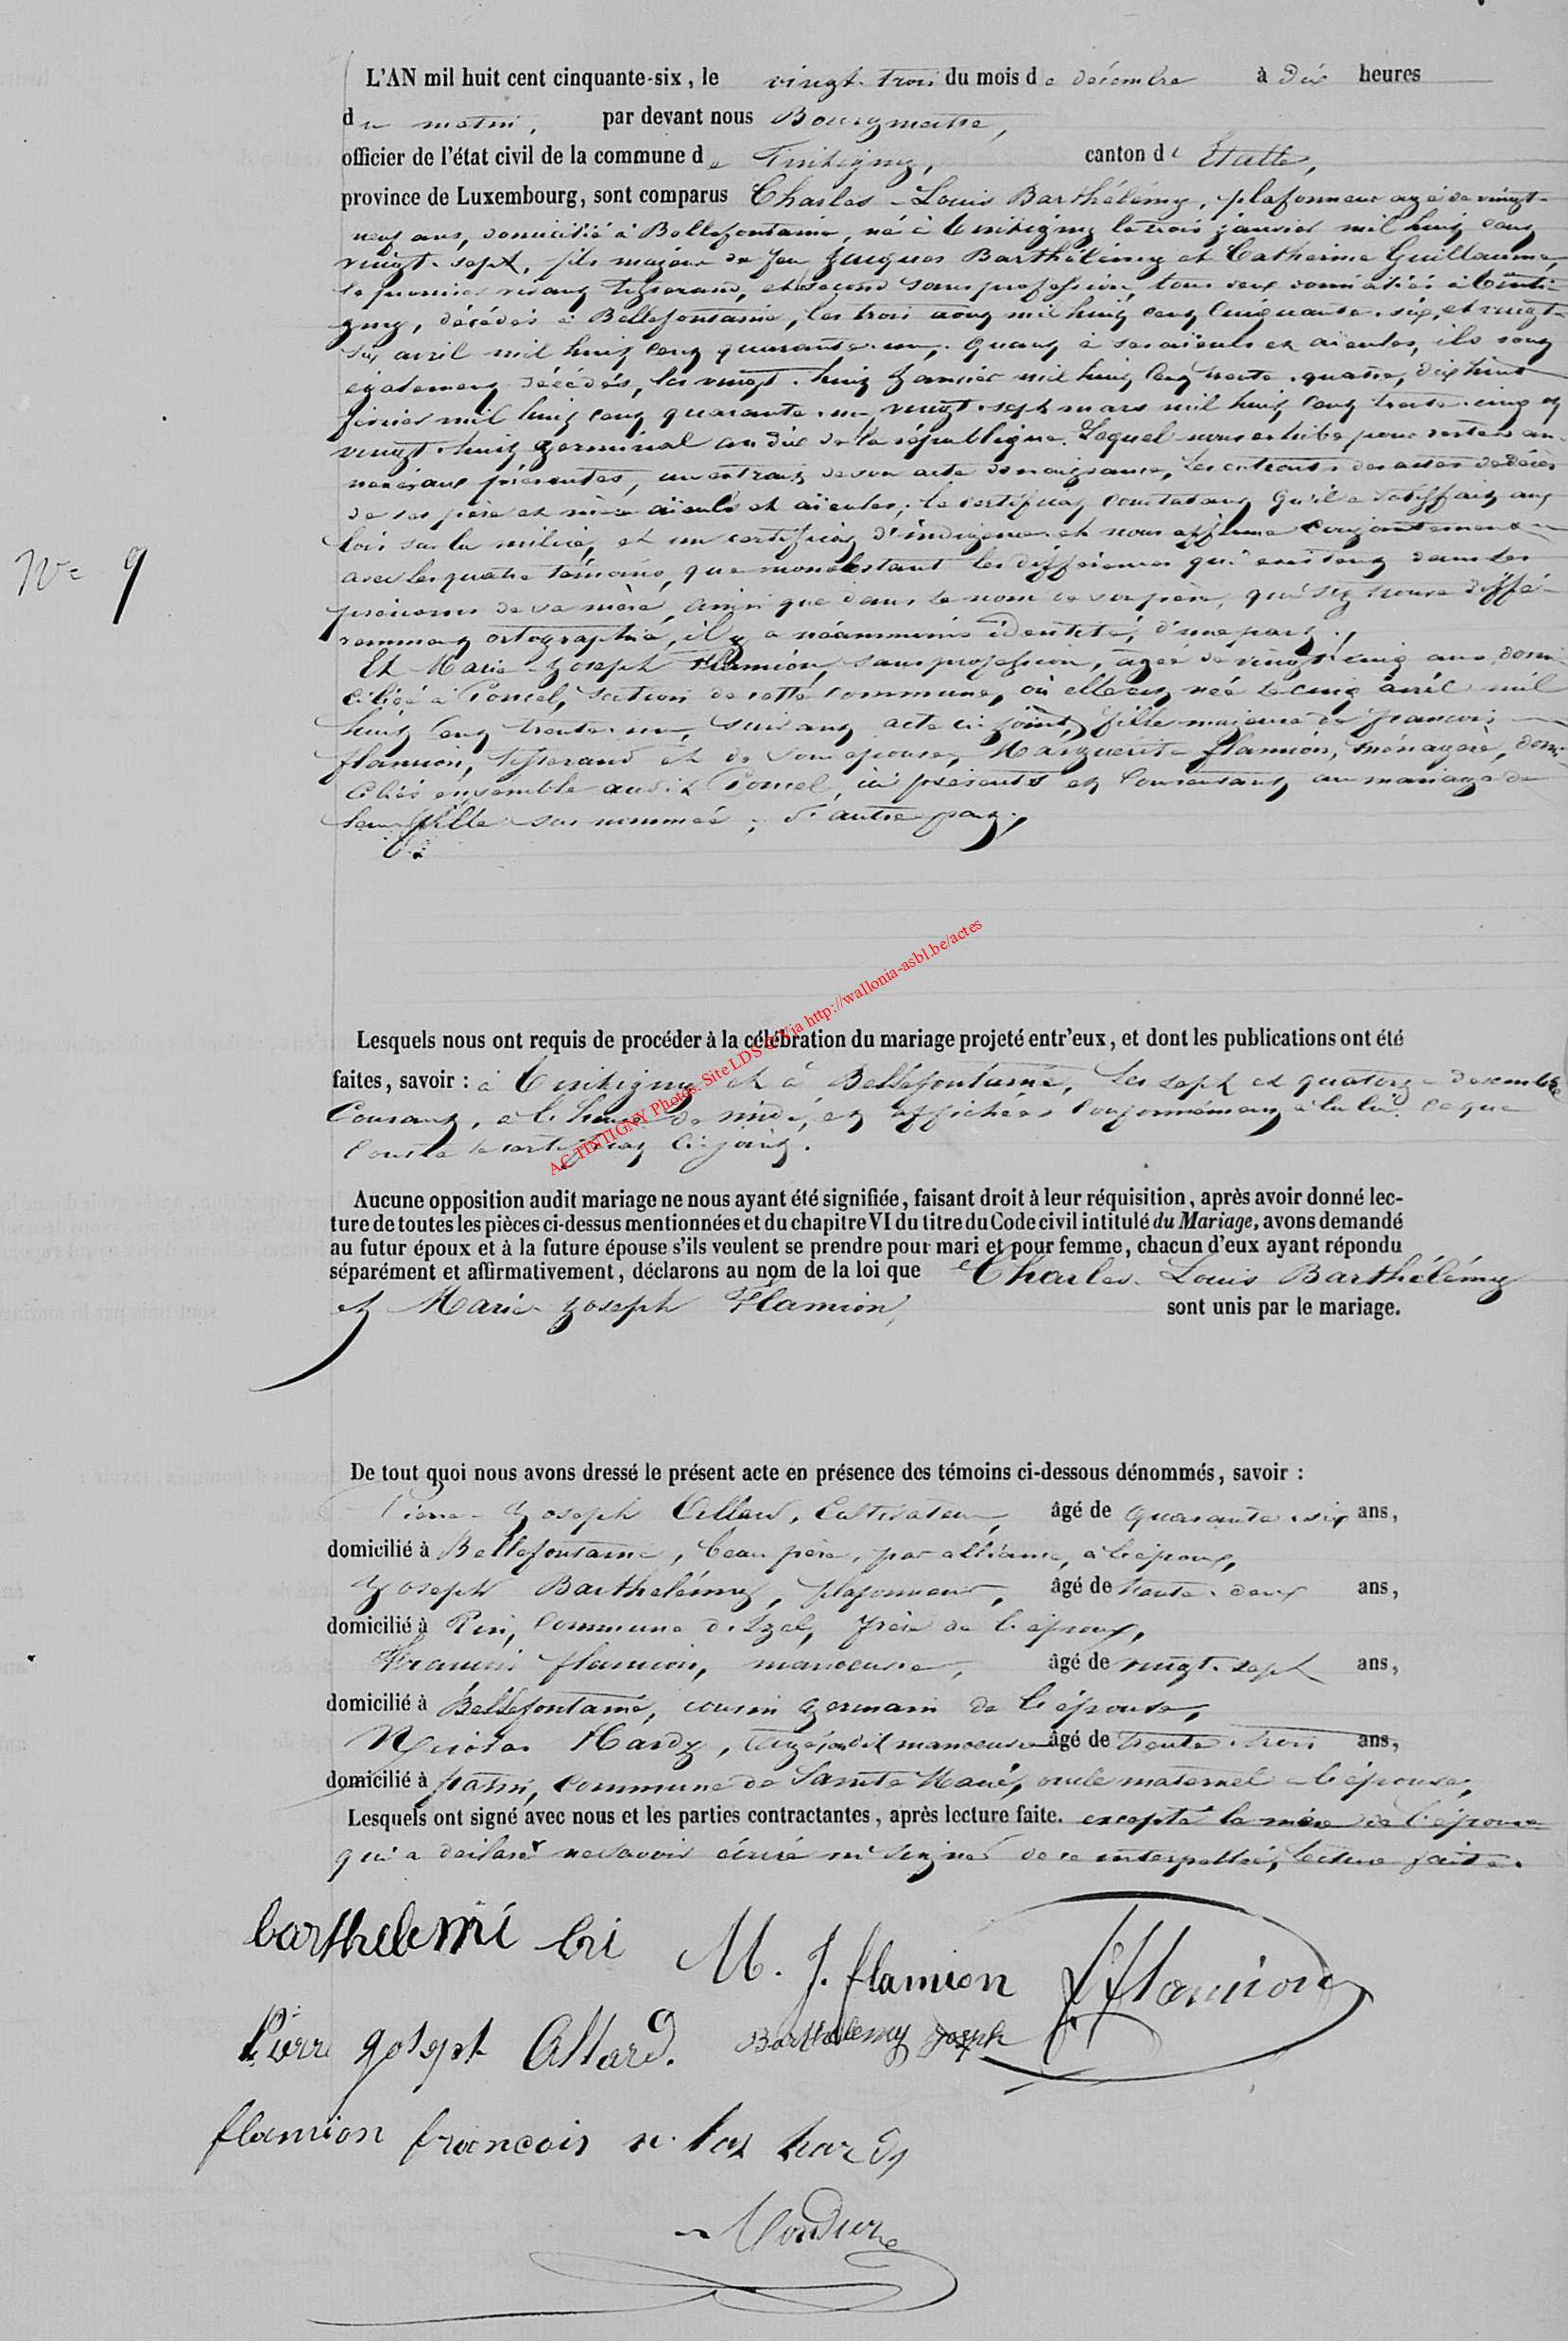 L'AN mil huit cent cinquante-six, le vingt-trois du mois de décembre à dix heures
du matin, par devant nous Bourgmestre,
officier de l'état civil de la commune de Tintigny, canton de Etalle,
province de Luxembourg, sont comparus Charles-Louis Barthélémy, plafonneur agé de vingt-
neuf ans, domicilié à Bellefontaine, né à Tintigny le trois janvier mil huit cent
vingt-sept, fils majeur de feu Jacques Barthélémy et Catherine Guillaume,
le premier vivant tisserand, et second sans profession, tous deux domiciliés à Tinti-
gny, décédés à Bellefontaine, les trois août mil huit cent cinquante-six, et vingt-
six avril mil huit cent quarante-un, quant à ses aïeuls et aïeules, ils sont
également décédés, les vingt-huit janvier mil huit cent trente-quatre, dix huit
février mil huit cent quarante-un, vingt-sept mars mil huit cent trente-cinq et
vingt-huit germinal an dix de la république. Lequel nous exhibe pour rester an-
nexés aux présentes, un extrait de son acte de naissance, les extraits des actes de décès
de ses père et mère aïeuls et aïeules; le certificat constatant qu'il a satisfait aux
lois sur la milice, et un certificat d'indigence et nous affirme conjointement
avec les quatre témoins, que nonobstant les différences qui existent dans les
prénoms de sa mère, ainsi que dans le nom de son père, qui s'y trouve diffé-
remment ortographié, il y a néanmoins identité, d'une part;
Et Marie-Joseph Flamion, sans profession, agée de vingt-cinq ans, domi-
ciliée à Poncel, section de cette commune, où elle est née le cinq avril mil
huit cent trente-un, suivant acte ci-joint, fille majeure de françois
flamion, tisserand et de son épouse, Marguerite flamion, ménagère, domi-
ciliés ensemble audit Poncel, ici présents et consentant au mariage de
leur fille sus nommée; d'autre part;
N° 9
Lesquels nous ont requis de procéder à la célébration du mariage projeté entr'eux, et dont les publications ont été
faites, savoir: à Tintigny et à Bellefontaine, les sept et quatorze décembre
courant, à l'heure de midi, et affichées conformément à la loi ce que
conste le certificat ci-joint.
AC TINTIGNY Photos: Site LDS © Via http://wallonia-asbl.be/actes
Aucune opposition audit mariage ne nous ayant été signifiée, faisant droit à leur réquisition, après avoir donné lec-
ture de toutes les pièces ci-dessus mentionnées et du chapitre VI du titre du Code civil intitulé du Mariage, avons demandé
au futur époux et à la future épouse s'ils veulent se prendre pour mari et pour femme, chacun d'eux ayant répondu
séparément et affirmativement, déclarons au nom de la loi que Charles-Louis Barthélémy
et Marie-Joseph Flamion, sont unis par le mariage.
De tout quoi nous avons dressé le présent acte en présence des témoins ci-dessous dénommés, savoir:
Pierre-Joseph Allard, cultivateur, âgé de quarante-six ans,
domicilié à Bellefontaine, beau père, par alliance, à l'époux,
Joseph Barthélémy, plafonneur, âgé de trente-deux ans,
domicilié à Pin, commune d'Izel, frère de l'époux,
François flamion, manoeuvre, âgé de vingt-sept ans,
domicilié à Bellefontaine, cousin germain de l'épouse,
Nicolas Hardy, manoeuvre âgé de trente-trois ans,
domicilié à fratin, commune de Sainte Marie, oncle maternel à l'épouse,
Lesquels ont signé avec nous et les parties contractantes, après lecture faite. excepté la mère de l'épouse
qui a déclaré ne savoir écrire ni signer de ce interpellée, lecture faite.
barthelemi M. J. flamion f flamion
Pierre Joseph Allard. Barthelemy Joseph
flamion francois n. las hardy